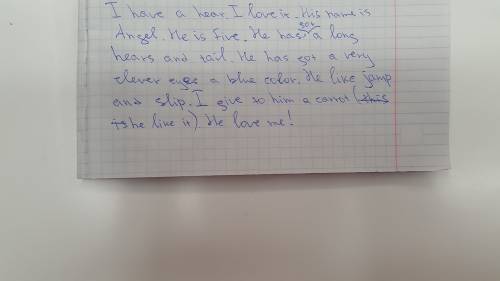 I have a hear. I love it. His name is
Angel. He is five. He has got a long
hears and tail. He has got a very
clever eyes a blue color. He like jamp
and slip. I give to him a carrot (this
is he like it). He love me!